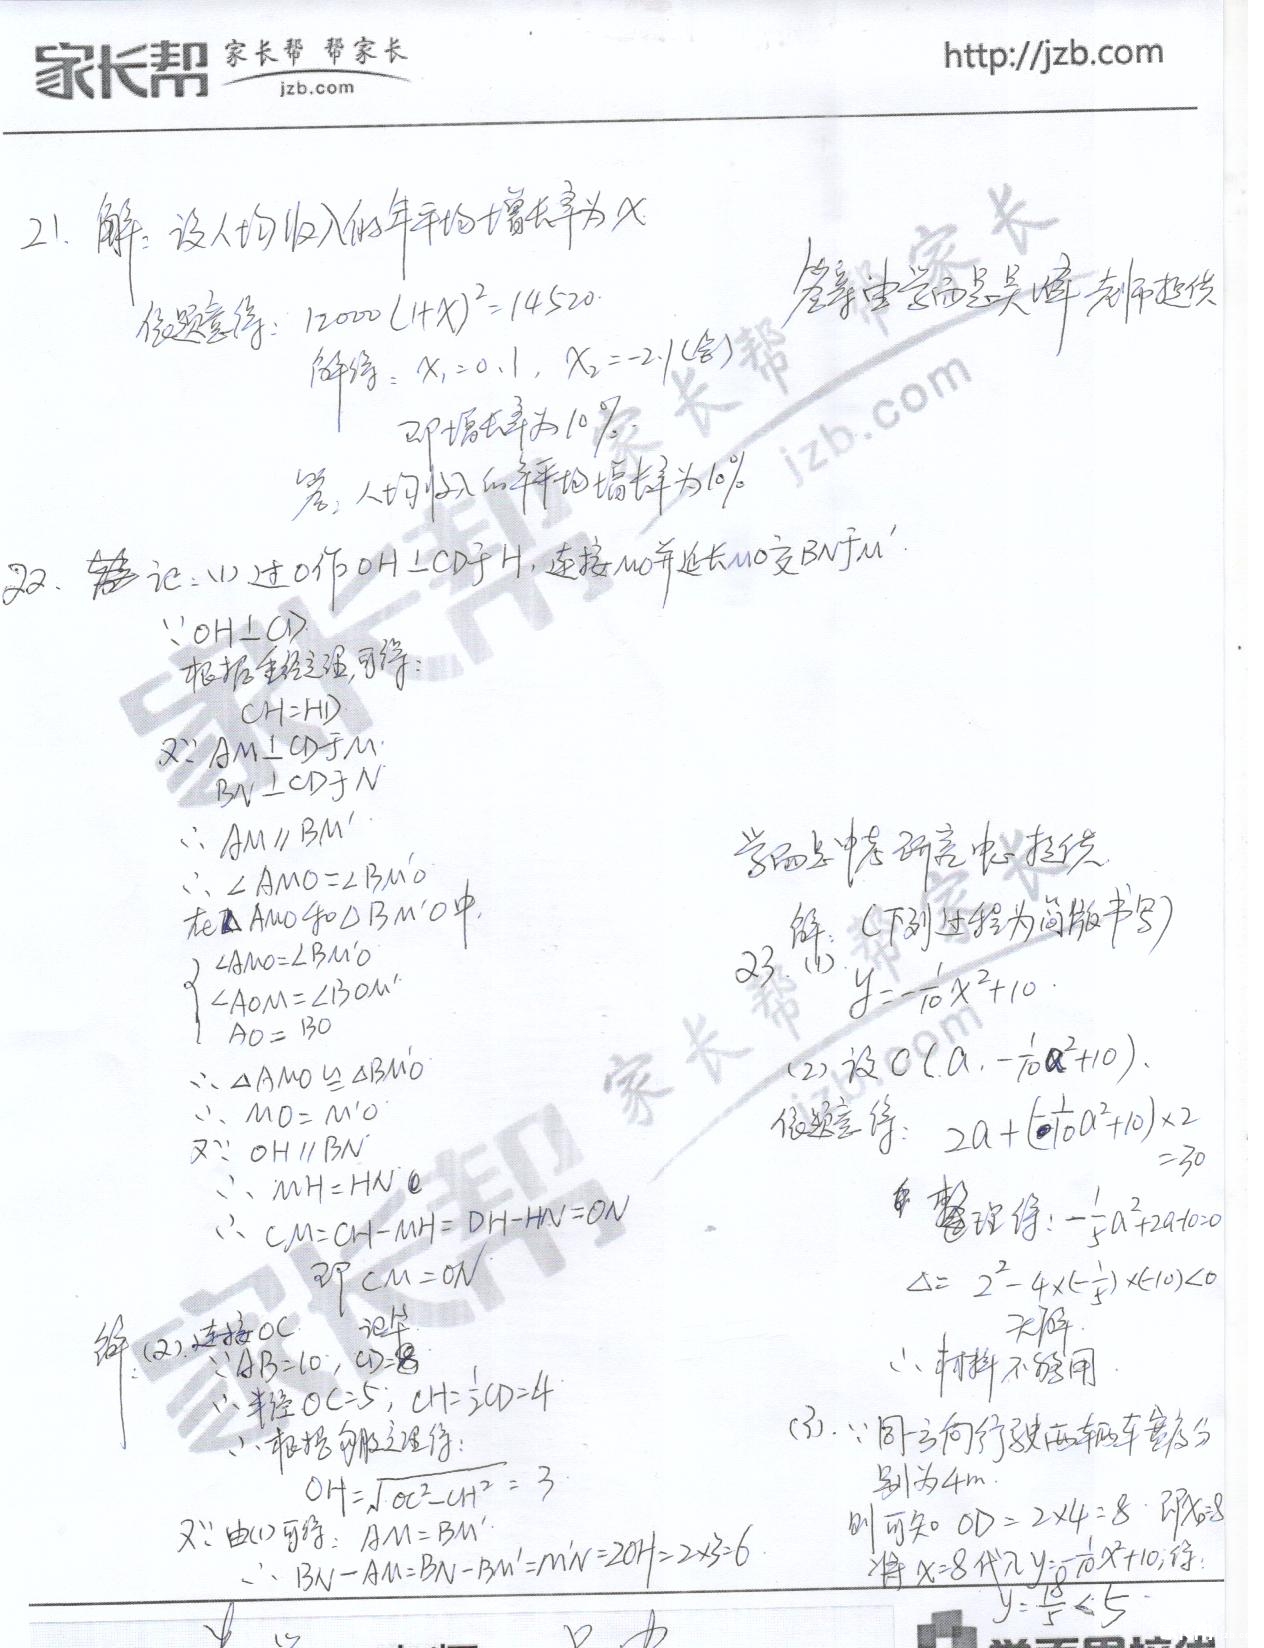 家长帮 家长帮 帮家长
jzb.com
http://jzb.com
21. 解: 设人均收入的年平均增长率为x
依题意得: 12000(1+x)²=14520.
解得: x₁=0.1, x₂=-2.1(舍)
即增长率为10%.
答: 人均收入的年平均增长率为10%
答案由学而思吴 老师提供
22. 证: (1) 过O作OH⊥CD于H, 连接MO并延长MO交BN于M'.
∵OH⊥CD
根据垂径定理,可得:
CH=HD
又∵AM⊥CD于M
BN⊥CD于N
∴ AM∥BM'
∴ ∠AMO=∠BM'O
在△AMO和△BM'O中,
∠AMO=∠BM'O
∠AOM=∠BOM'
AO=BO
∴ △AMO≌△BM'O
∴ MO=M'O
又∵ OH∥BN
∴ MH=HN
∴ CM=CH-MH=DH-HN=DN
即CM=DN
解: (2). 连接OC
∵AB=10, CD=8
∴半径OC=5, CH=½CD=4
∴根据勾股定理得:
OH=√OC²-CH² = 3
又∵由(1)可得: AM=BM'
∴ BN-AM=BN-BM'=M'N=2OH=2×3=6
学而思中考研究中心提供
解: (下列过程为简版书写)
23. (1).
y=-1/10x²+10.
(2) 设C(a, -1/10a²+10).
依题意得: 2a+(-1/10a²+10)×2
=30
整理得: -1/5a²+2a-10=0
△= 2²-4×(-1/5)×(-10)<0
无解.
∴ 材料不够用.
(3). ∵同方向行驶两辆车宽度分
别为4m.
则可知 OD=2×4=8. 即x₀=8
将x=8代入y=-1/10x²+10,得:
y=18/5<5
家长帮 帮家长
jzb.com
家长帮
家长帮 帮家长
jzb.com
家长帮